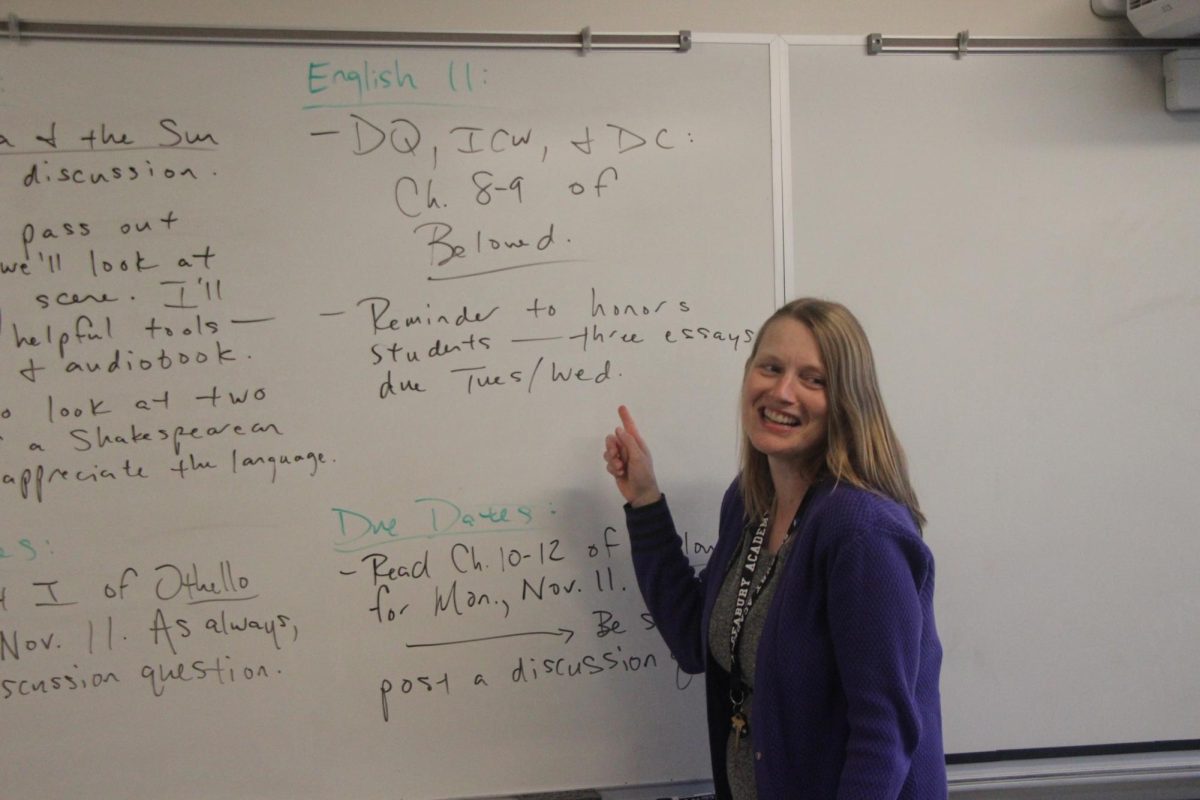 a & the Sun
discussion.
pass out
we'll look at
scene. I'll
helpful tools —
& audiobook.
look at two
a Shakespearean
appreciate the language.
I of Othello
Nov. 11. As always,
scussion question.
English 11:
- DQ, ICW, & DC:
Ch. 8-9 of
Beloved.
- Reminder to honors
students — three essays
due Tues/Wed.
Due Dates:
- Read Ch. 10-12 of
for Mon., Nov. 11.
→ Be s
post a discussion
EABURY ACADEM